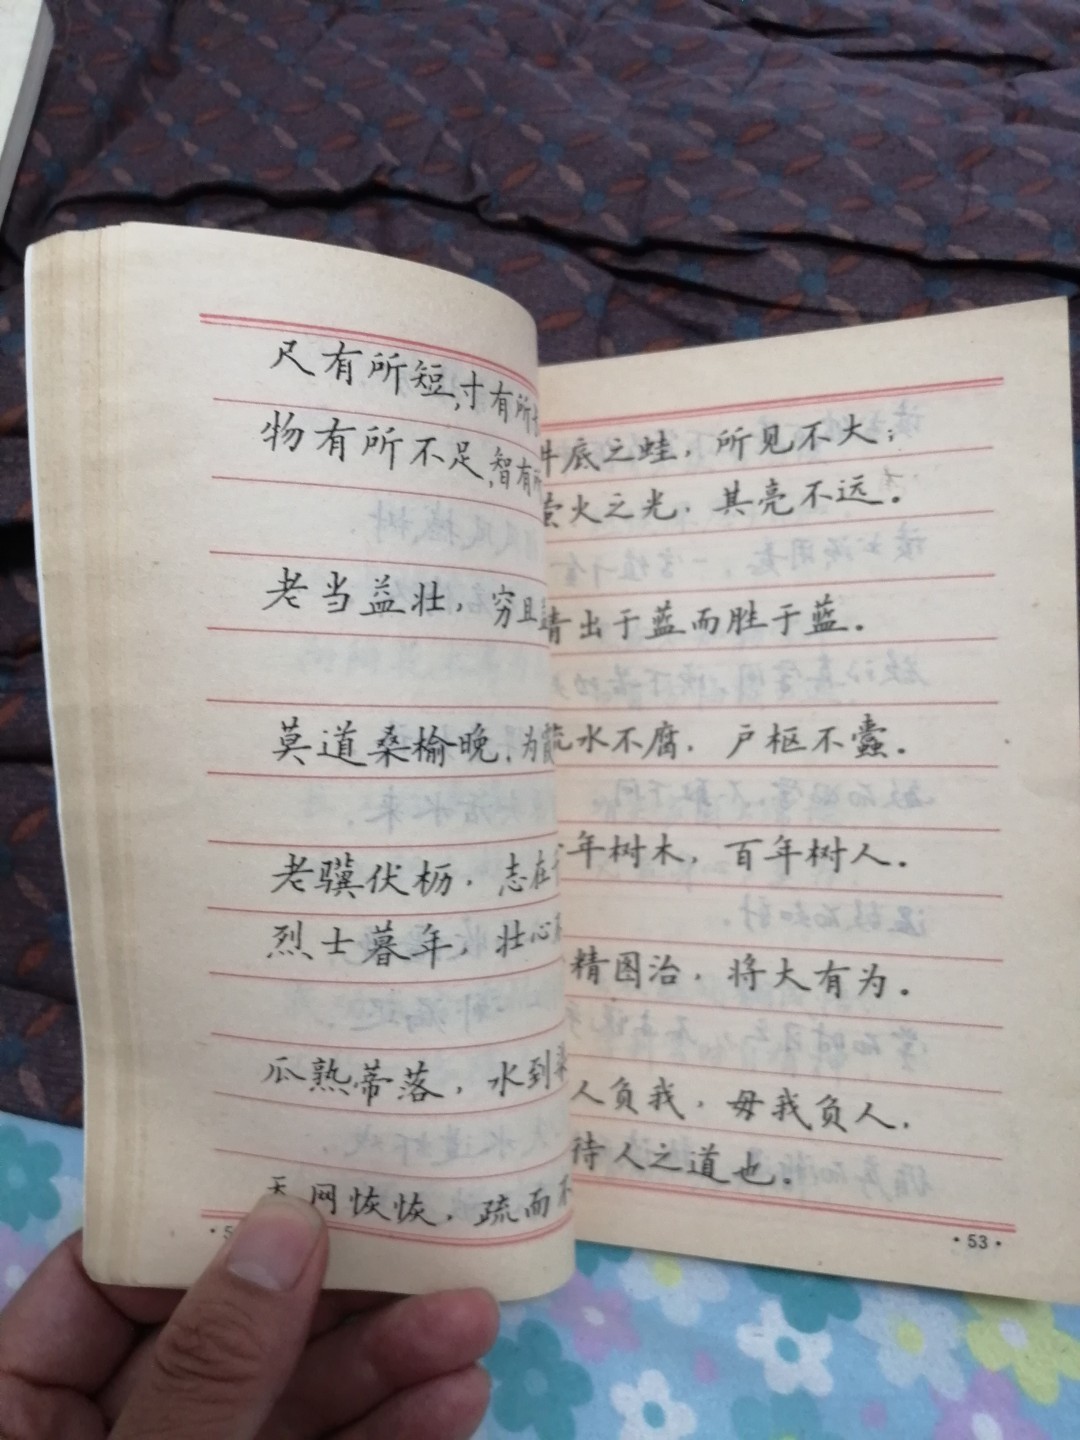 尺有所短,寸有所
物有所不足,智有所
老当益壮,穷且
莫道桑榆晚,为霞
老骥伏枥,志在
烈士暮年,壮心
瓜熟蒂落,水到
天网恢恢,疏而不
底之蛙,所见不大;
萤火之光,其亮不远。
青出于蓝而胜于蓝。
流水不腐,户枢不蠹。
年树木,百年树人。
精图治,将大有为。
人负我,毋我负人,
待人之道也。
·53·